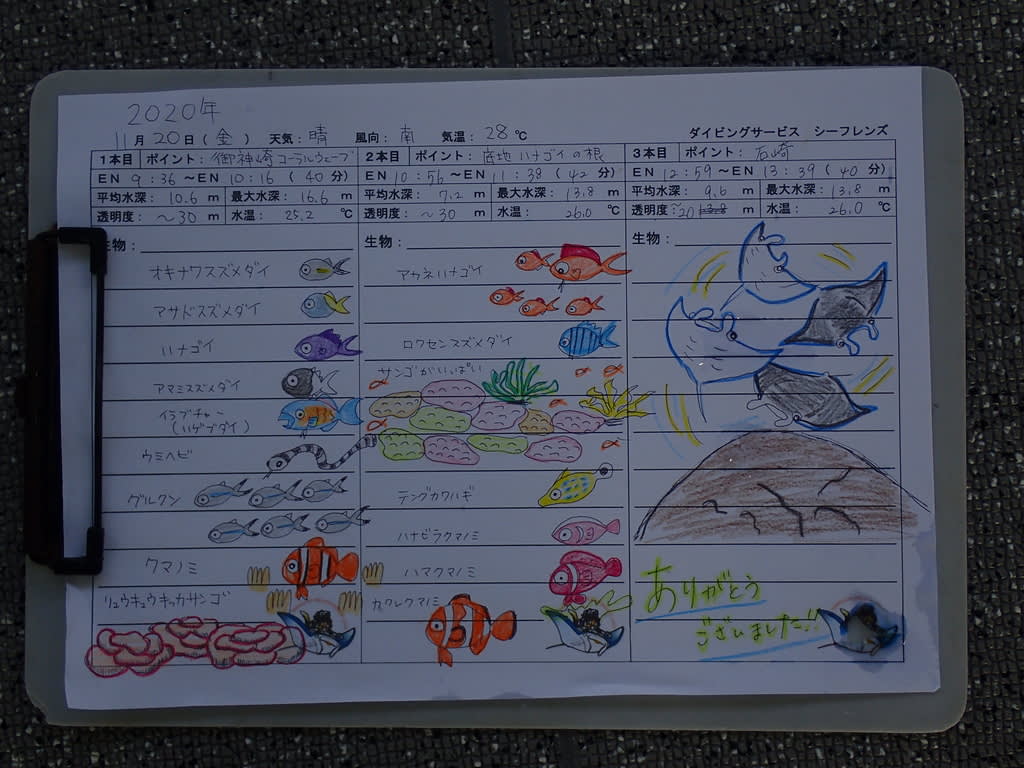 2020年
11月20日(金) 天気:晴 風向:南 気温:28℃ ダイビングサービス シーフレンズ
1本目 ポイント:御神崎コーラルウェーブ
EN 9:36 ~EN 10:16 (40分)
平均水深: 10.6 m 最大水深: 16.6 m
透明度: ~30 m 水温: 25.2 ℃
生物:
オキナワスズメダイ
アサドスズメダイ
ハナゴイ
アマミスズメダイ
イラブチャー
(ハゲブダイ)
ウミヘビ
グルクン
クマノミ
リュウキュウキッカサンゴ
2本目 ポイント: 底地ハナゴイの根
EN 10:56 ~EN 11:38 (42分)
平均水深: 7.2 m 最大水深: 13.8 m
透明度: ~30 m 水温: 26.0 ℃
生物:
アカネハナゴイ
ロクセンスズメダイ
サンゴがいっぱい
テングカワハギ
ハナビラクマノミ
ハマクマノミ
カクレクマノミ
3本目 ポイント: 石崎
EN 12:59 ~EN 13:39 (40分)
平均水深: 9.6 m 最大水深: 13.8 m
透明度:~20 13.8 m 水温: 26.0 ℃
生物:
ありがとう
ございました!!